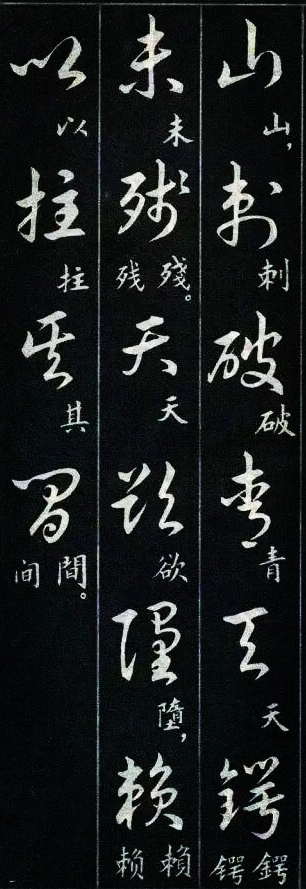 山刺破青天鍔
山，刺破青天鍔锷
未殘天欲墮賴
未殘。残天欲墮，賴赖
以拄其間
以拄其間。间